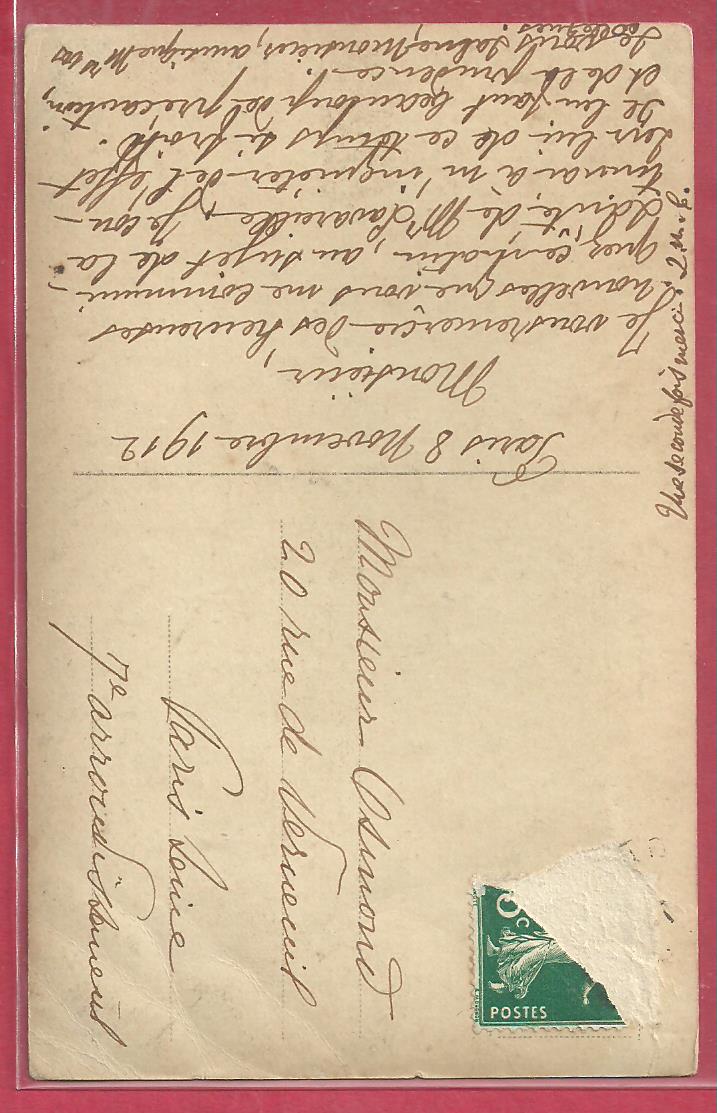 Paris 8 Novembre 1912
Monsieur,
Je vous remercie des heureuses
nouvelles que vous me communi-
quez, ce matin, au sujet de la
Santé de Mr Lavareille, Je con-
tinuai à m'inquiéter de l'effet
sur lui de ce temps si froid.
Il lui faut beaucoup de précaution,
et de la prudence.
Je vous salue, Monsieur, ainsi que Mr vos
collègues.
Une seconde fois merci.
Monsieur Osmond
20 rue de Verneuil
Paris Seine
7e arrondissement
5c
POSTES